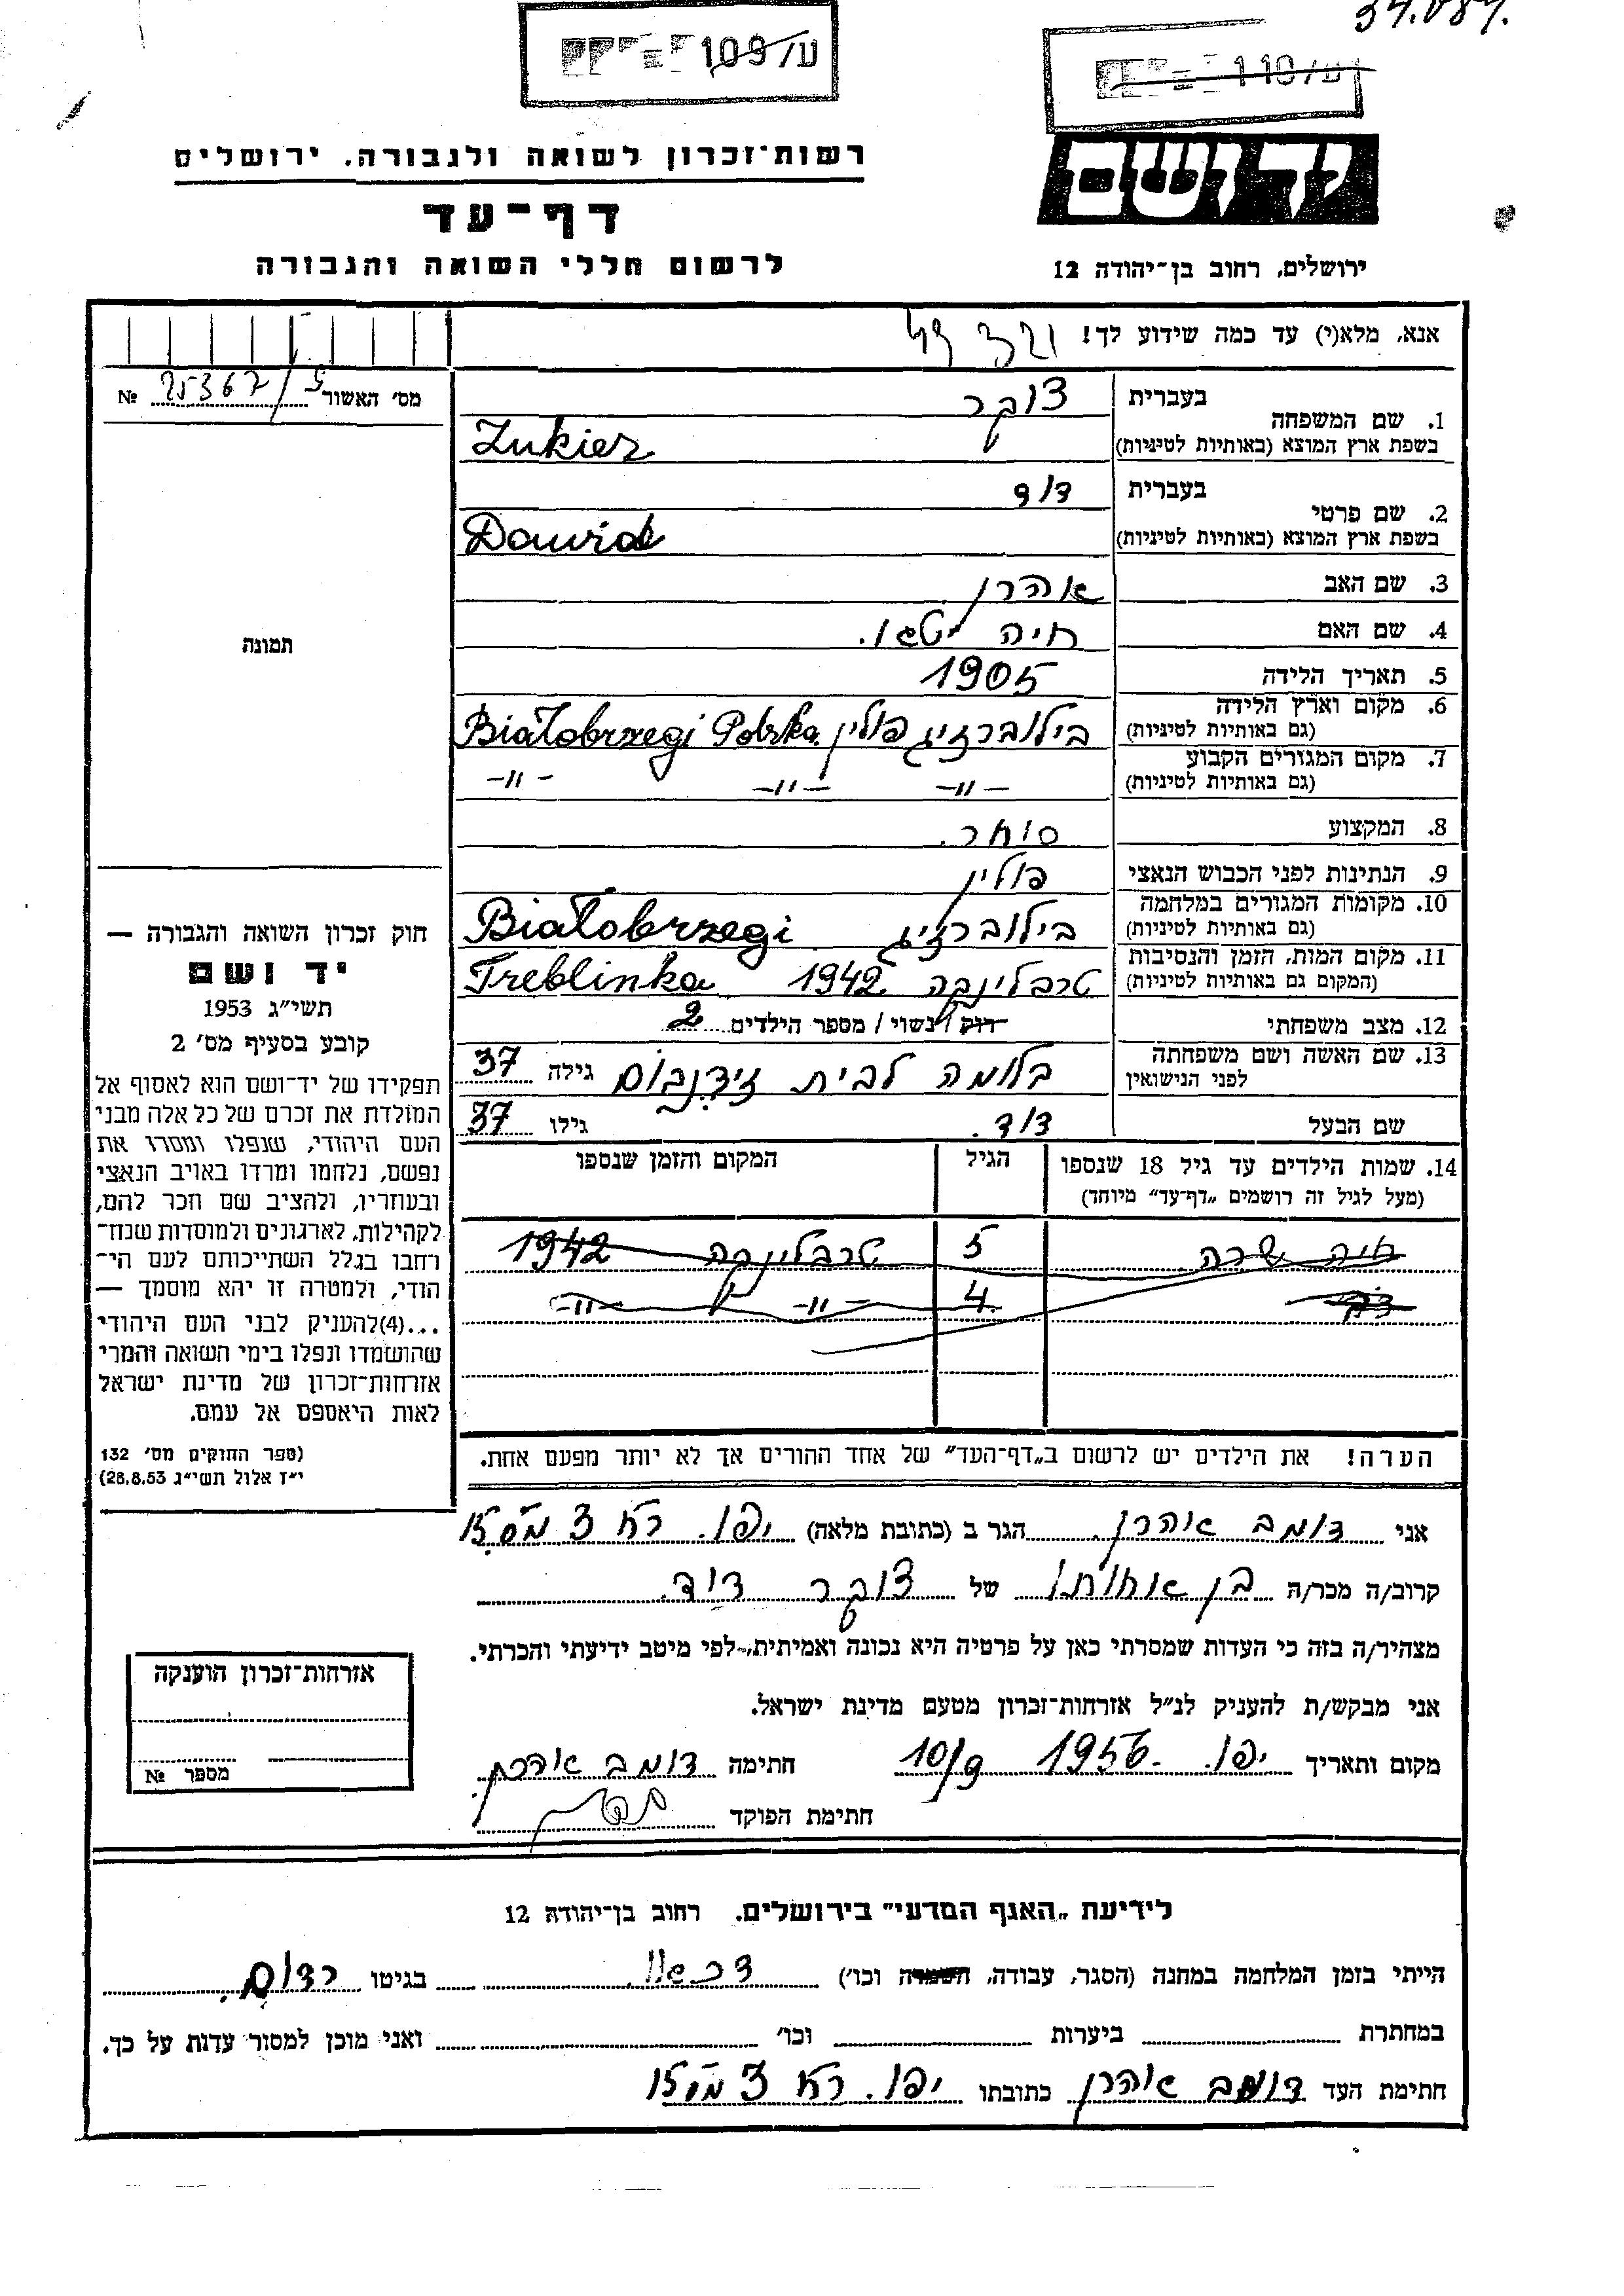 109/ע
110/ע
רשות־זכרון לשואה ולגבורה, ירושלים
יד ושם
דף־עד
לרשום חללי השואה והגבורה
ירושלים, רחוב בן־יהודה 12
אנא, מלא(י) עד כמה שידוע לך!
מס׳ האשור № 25367/
1. שם המשפחה
בעברית צוקר
בשפת ארץ המוצא (באותיות לטיניות) Zukier
2. שם פרטי
בעברית דוד
בשפת ארץ המוצא (באותיות לטיניות) Dawid
3. שם האב אהרן
4. שם האם חיה
5. תאריך הלידה 1905
6. מקום וארץ הלידה
(גם באותיות לטיניות) בילוברזיג פולין Białobrzegi Polska
7. מקום המגורים הקבוע
(גם באותיות לטיניות) -"- -"- -"-
8. המקצוע סוחר.
9. הנתינות לפני הכבוש הנאצי פולין
10. מקומות המגורים במלחמה
(גם באותיות לטיניות) בילוברזיג Białobrzegi
11. מקום המות, הזמן והנסיבות
(המקום גם באותיות לטיניות) טרבלינקה 1942 Treblinka
12. מצב משפחתי רוק / נשוי / מספר הילדים 2
13. שם האשה ושם משפחתה
לפני הנישואין בלומה לבית זידנבוים גילה 37
שם הבעל דוד. גילו 37
14. שמות הילדים עד גיל 18 שנספו
(מעל לגיל זה רושמים „דף־עד״ מיוחד)
הגיל
המקום והזמן שנספו
חיה שרה 5 טרבלינקה 1942
4 -"- -"-
הערה! את הילדים יש לרשום ב„דף־העד״ של אחד ההורים אך לא יותר מפעם אחת.
תמונה
חוק זכרון השואה והגבורה —
יד ושם
תשי״ג 1953
קובע בסעיף מס׳ 2
תפקידו של יד־ושם הוא לאסוף אל
המולדת את זכרם של כל אלה מבני
העם היהודי, שנפלו ומסרו את
נפשם, נלחמו ומרדו באויב הנאצי
ובעוזריו, ולהציב שם וזכר להם,
לקהילות, לארגונים ולמוסדות שנח־
רחבו בגלל השתייכותם לעם הי־
הודי, ולמטרה זו יהא מוסמך —
...(4)להעניק לבני העם היהודי
שהושמדו ונפלו בימי השואה והמרי
אזרחות־זכרון של מדינת ישראל
לאות היאספם אל עמם.
(ספר החוקים מס׳ 132
י״ז אלול תשי״ג 28.8.53)
אני דומב אהרן הגר ב (כתובת מלאה) יפו.
קרוב/ה מכר/ה בן אחותו של צוקר דוד
מצהיר/ה בזה כי העדות שמסרתי כאן על פרטיה היא נכונה ואמיתית, לפי מיטב ידיעתי והכרתי.
אני מבקש/ת להעניק לנ״ל אזרחות־זכרון מטעם מדינת ישראל.
מקום ותאריך יפו. 1956 10/9 חתימה דומב אהרן
חתימת הפוקד
אזרחות־זכרון הוענקה
מספר №
לידיעת „האגף המדעי״ בירושלים, רחוב בן־יהודה 12
הייתי בזמן המלחמה במחנה (הסגר, עבודה, השמדה וכו׳) בגיטו רדום.
במחתרת ביערות וכו׳ ואני מוכן למסור עדות על כך.
חתימת העד דומב אהרן כתובתו יפו.